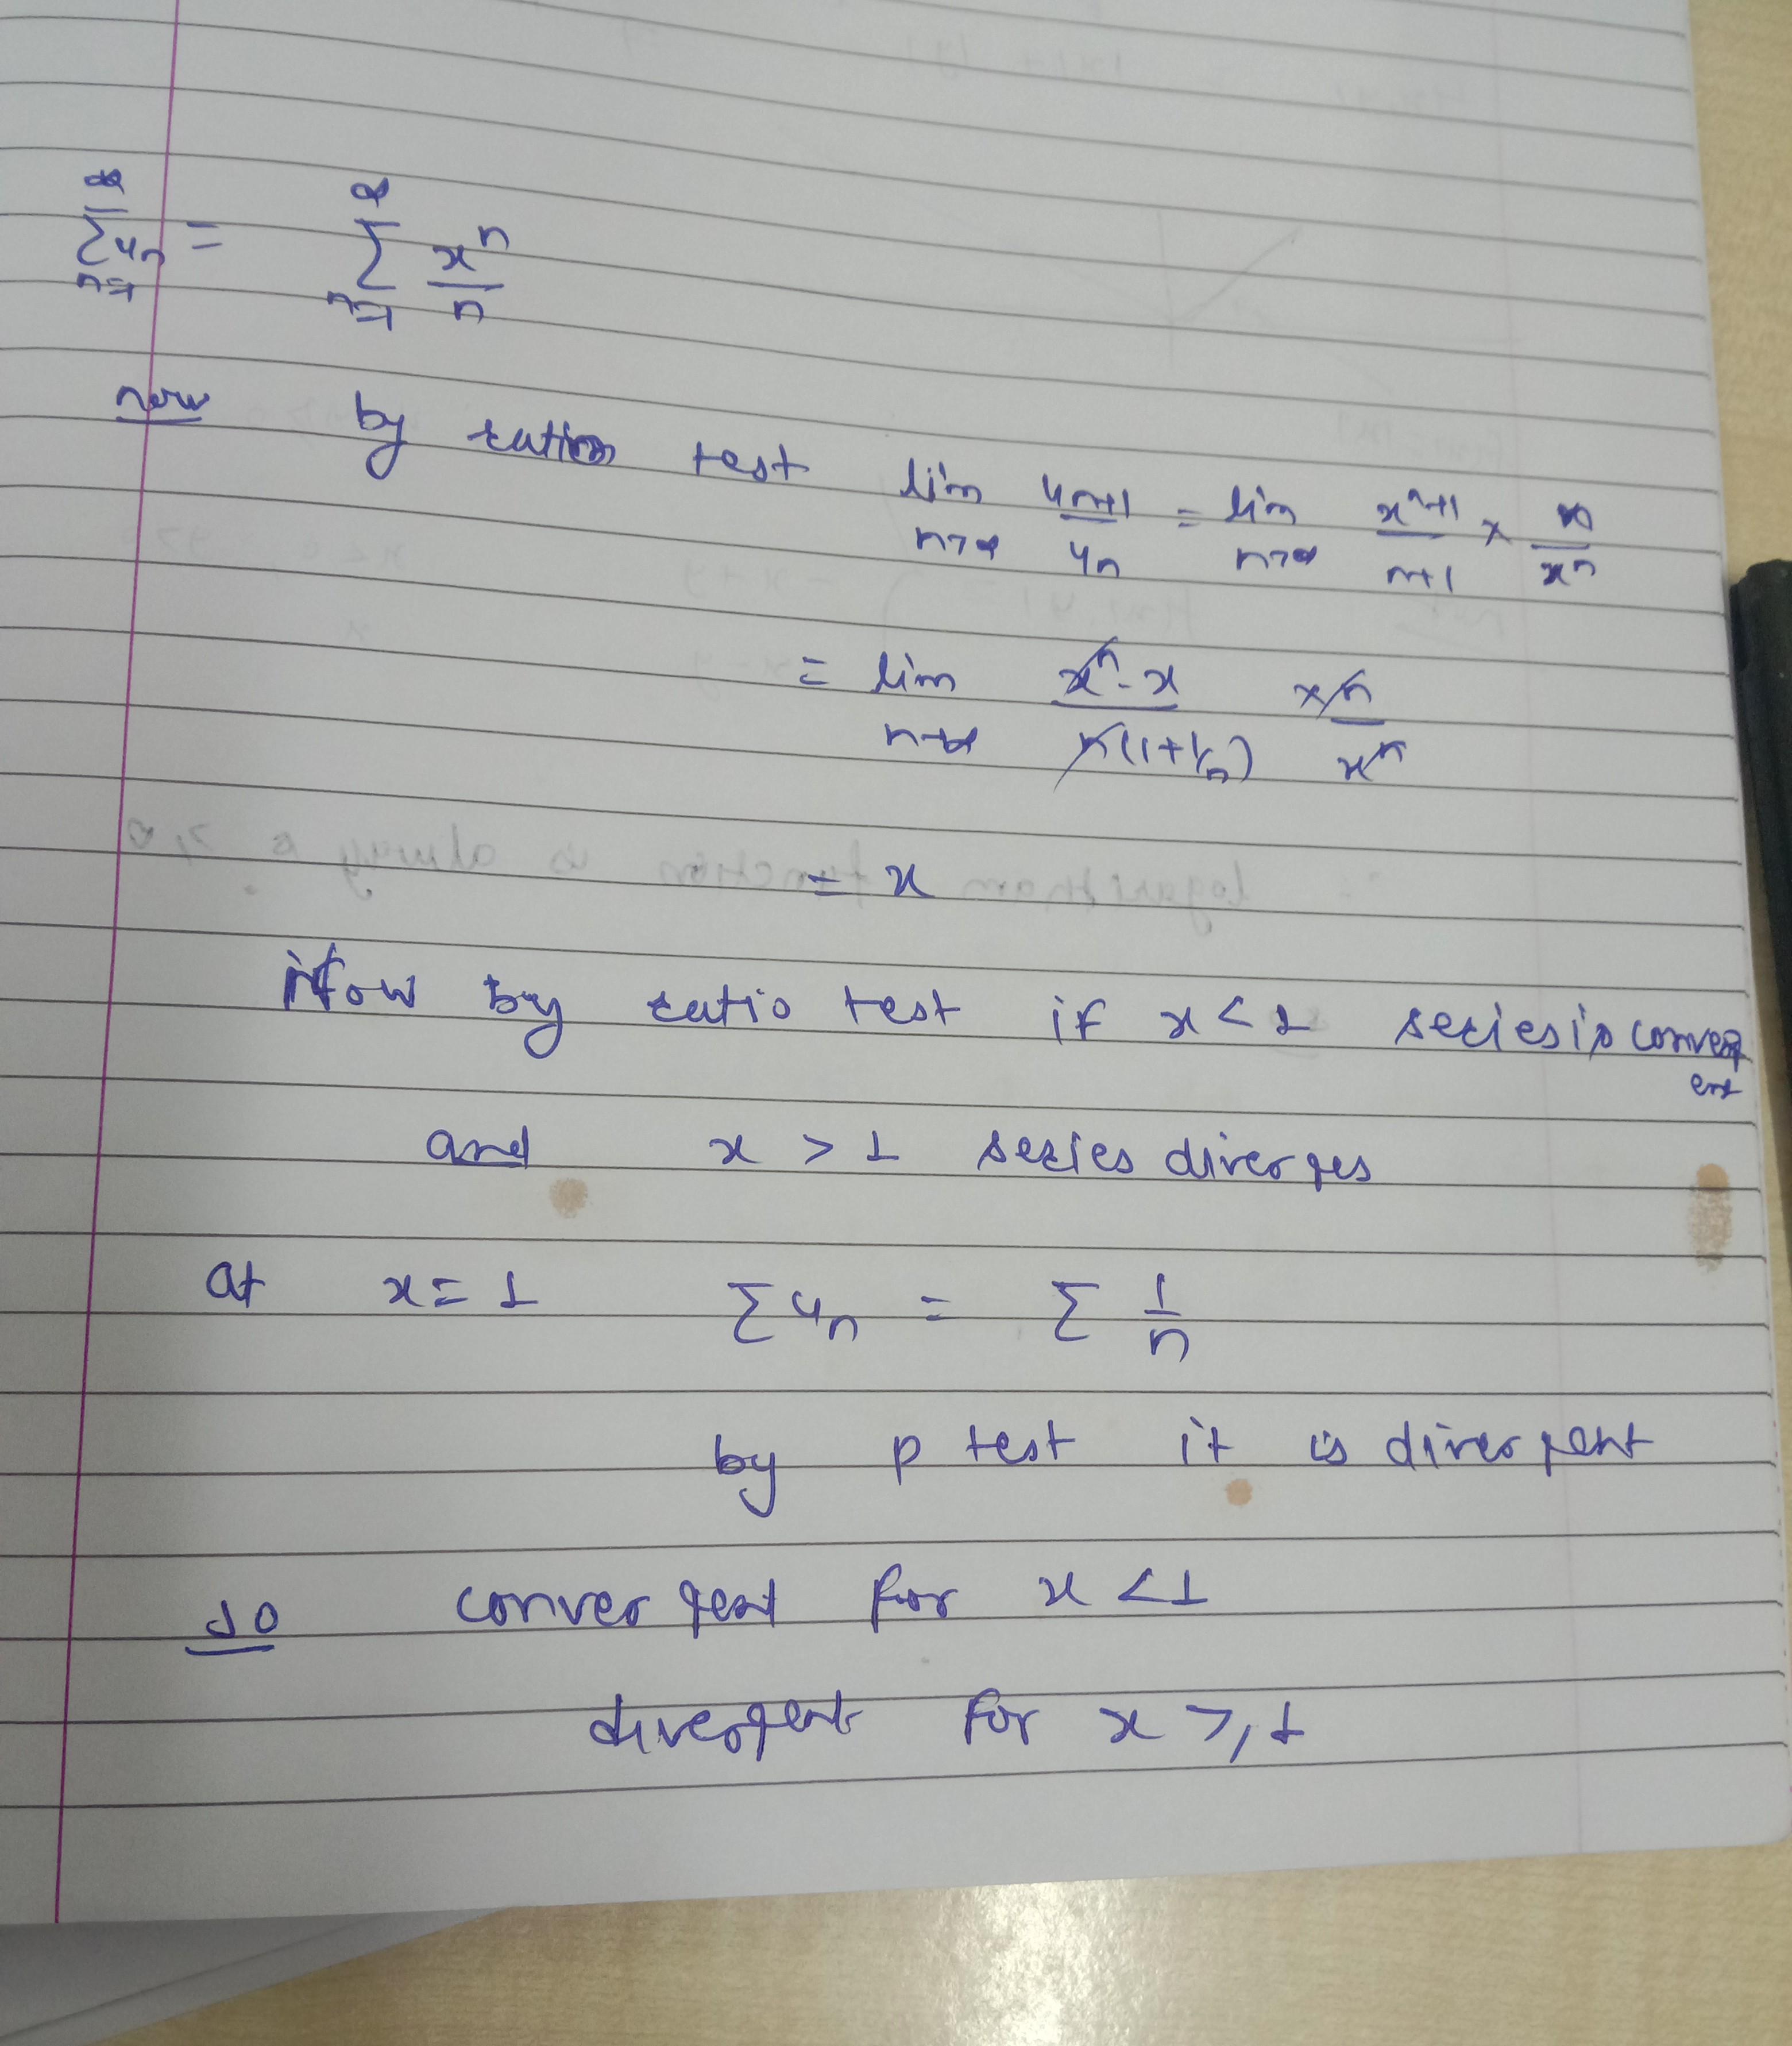 ∞ ∞
∑ uₙ = ∑ xⁿ/n
n=1 n=1
now by ratio test lim n→∞ uₙ₊₁/uₙ = lim n→∞ xⁿ⁺¹/n+1 × n/xⁿ
= lim n→∞ xⁿ·x/n(1+1/n) × n/xⁿ
= x
Now by ratio test if x < 1 series is converg
ent
and x > 1 series diverges
at x = 1 ∑uₙ = ∑ 1/n
by p test it is divergent
so convergent for x < 1
divergent for x ≥ 1